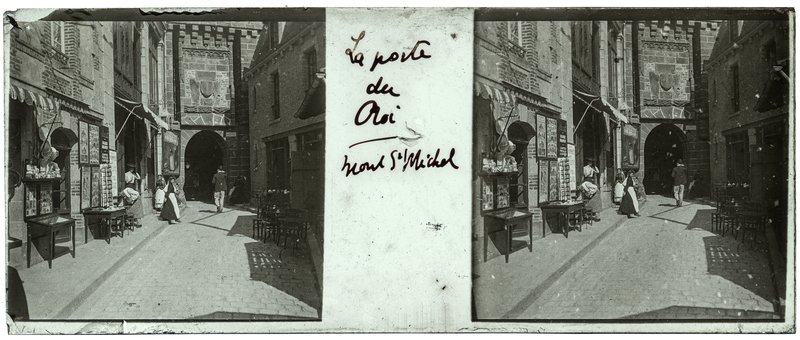 La porte
du
Roi
Mont St Michel